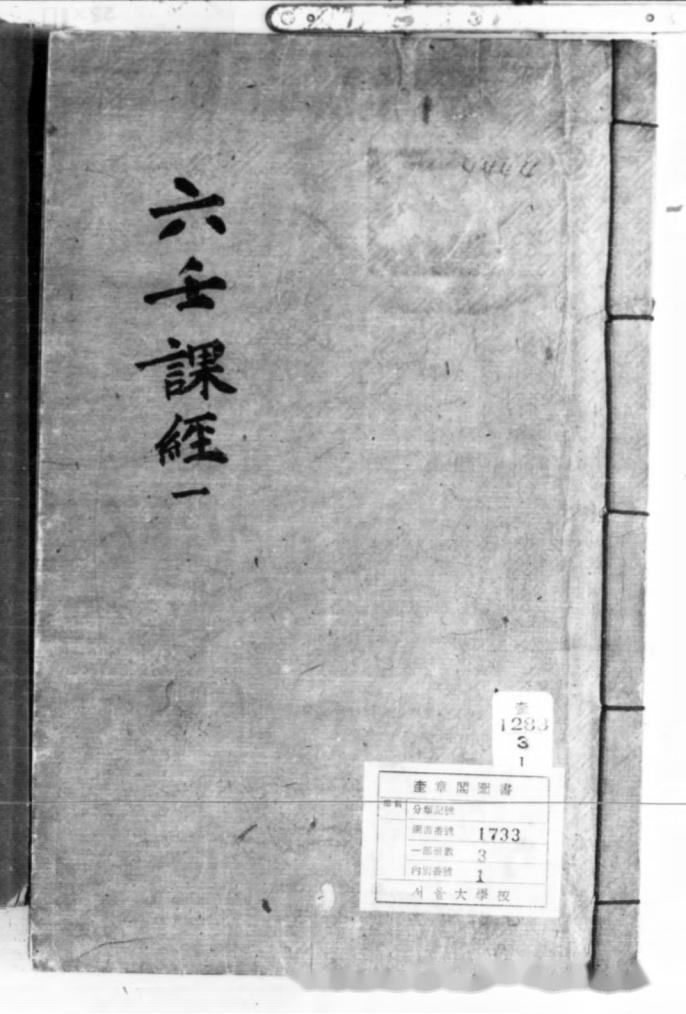 六壬課經一
奎
1283
3
1
奎章閣圖書
分類記號
圖書番號 1733
一部冊數 3
內別番號 1
서울大學校